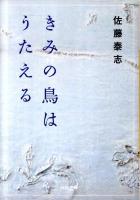 佐藤泰志
きみの鳥は
うたえる